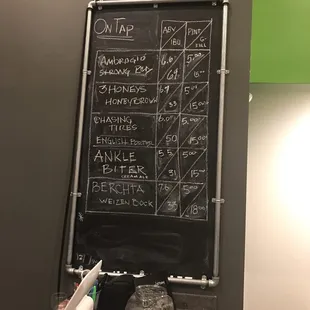 ON TAP
ABV
IBU
PINT
G
FILL
AMBROGIO
STRONG
67
5.00
15.00
3 HONEYS
HONEY BROWN
33
5.00
15.00
CHASING
TIRES
ENGLISH PORTER
6.0
50
5.00
15.00
ANKLE
BITER
CREAM ALE
5.5
31
5.00
15.00
BERCHTA
WEIZEN BOCK
7.6
33
5.00
18.00